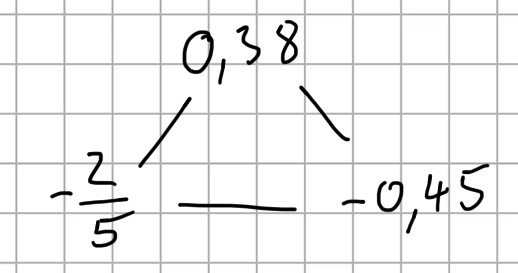 0,38
-2/5
-0,45